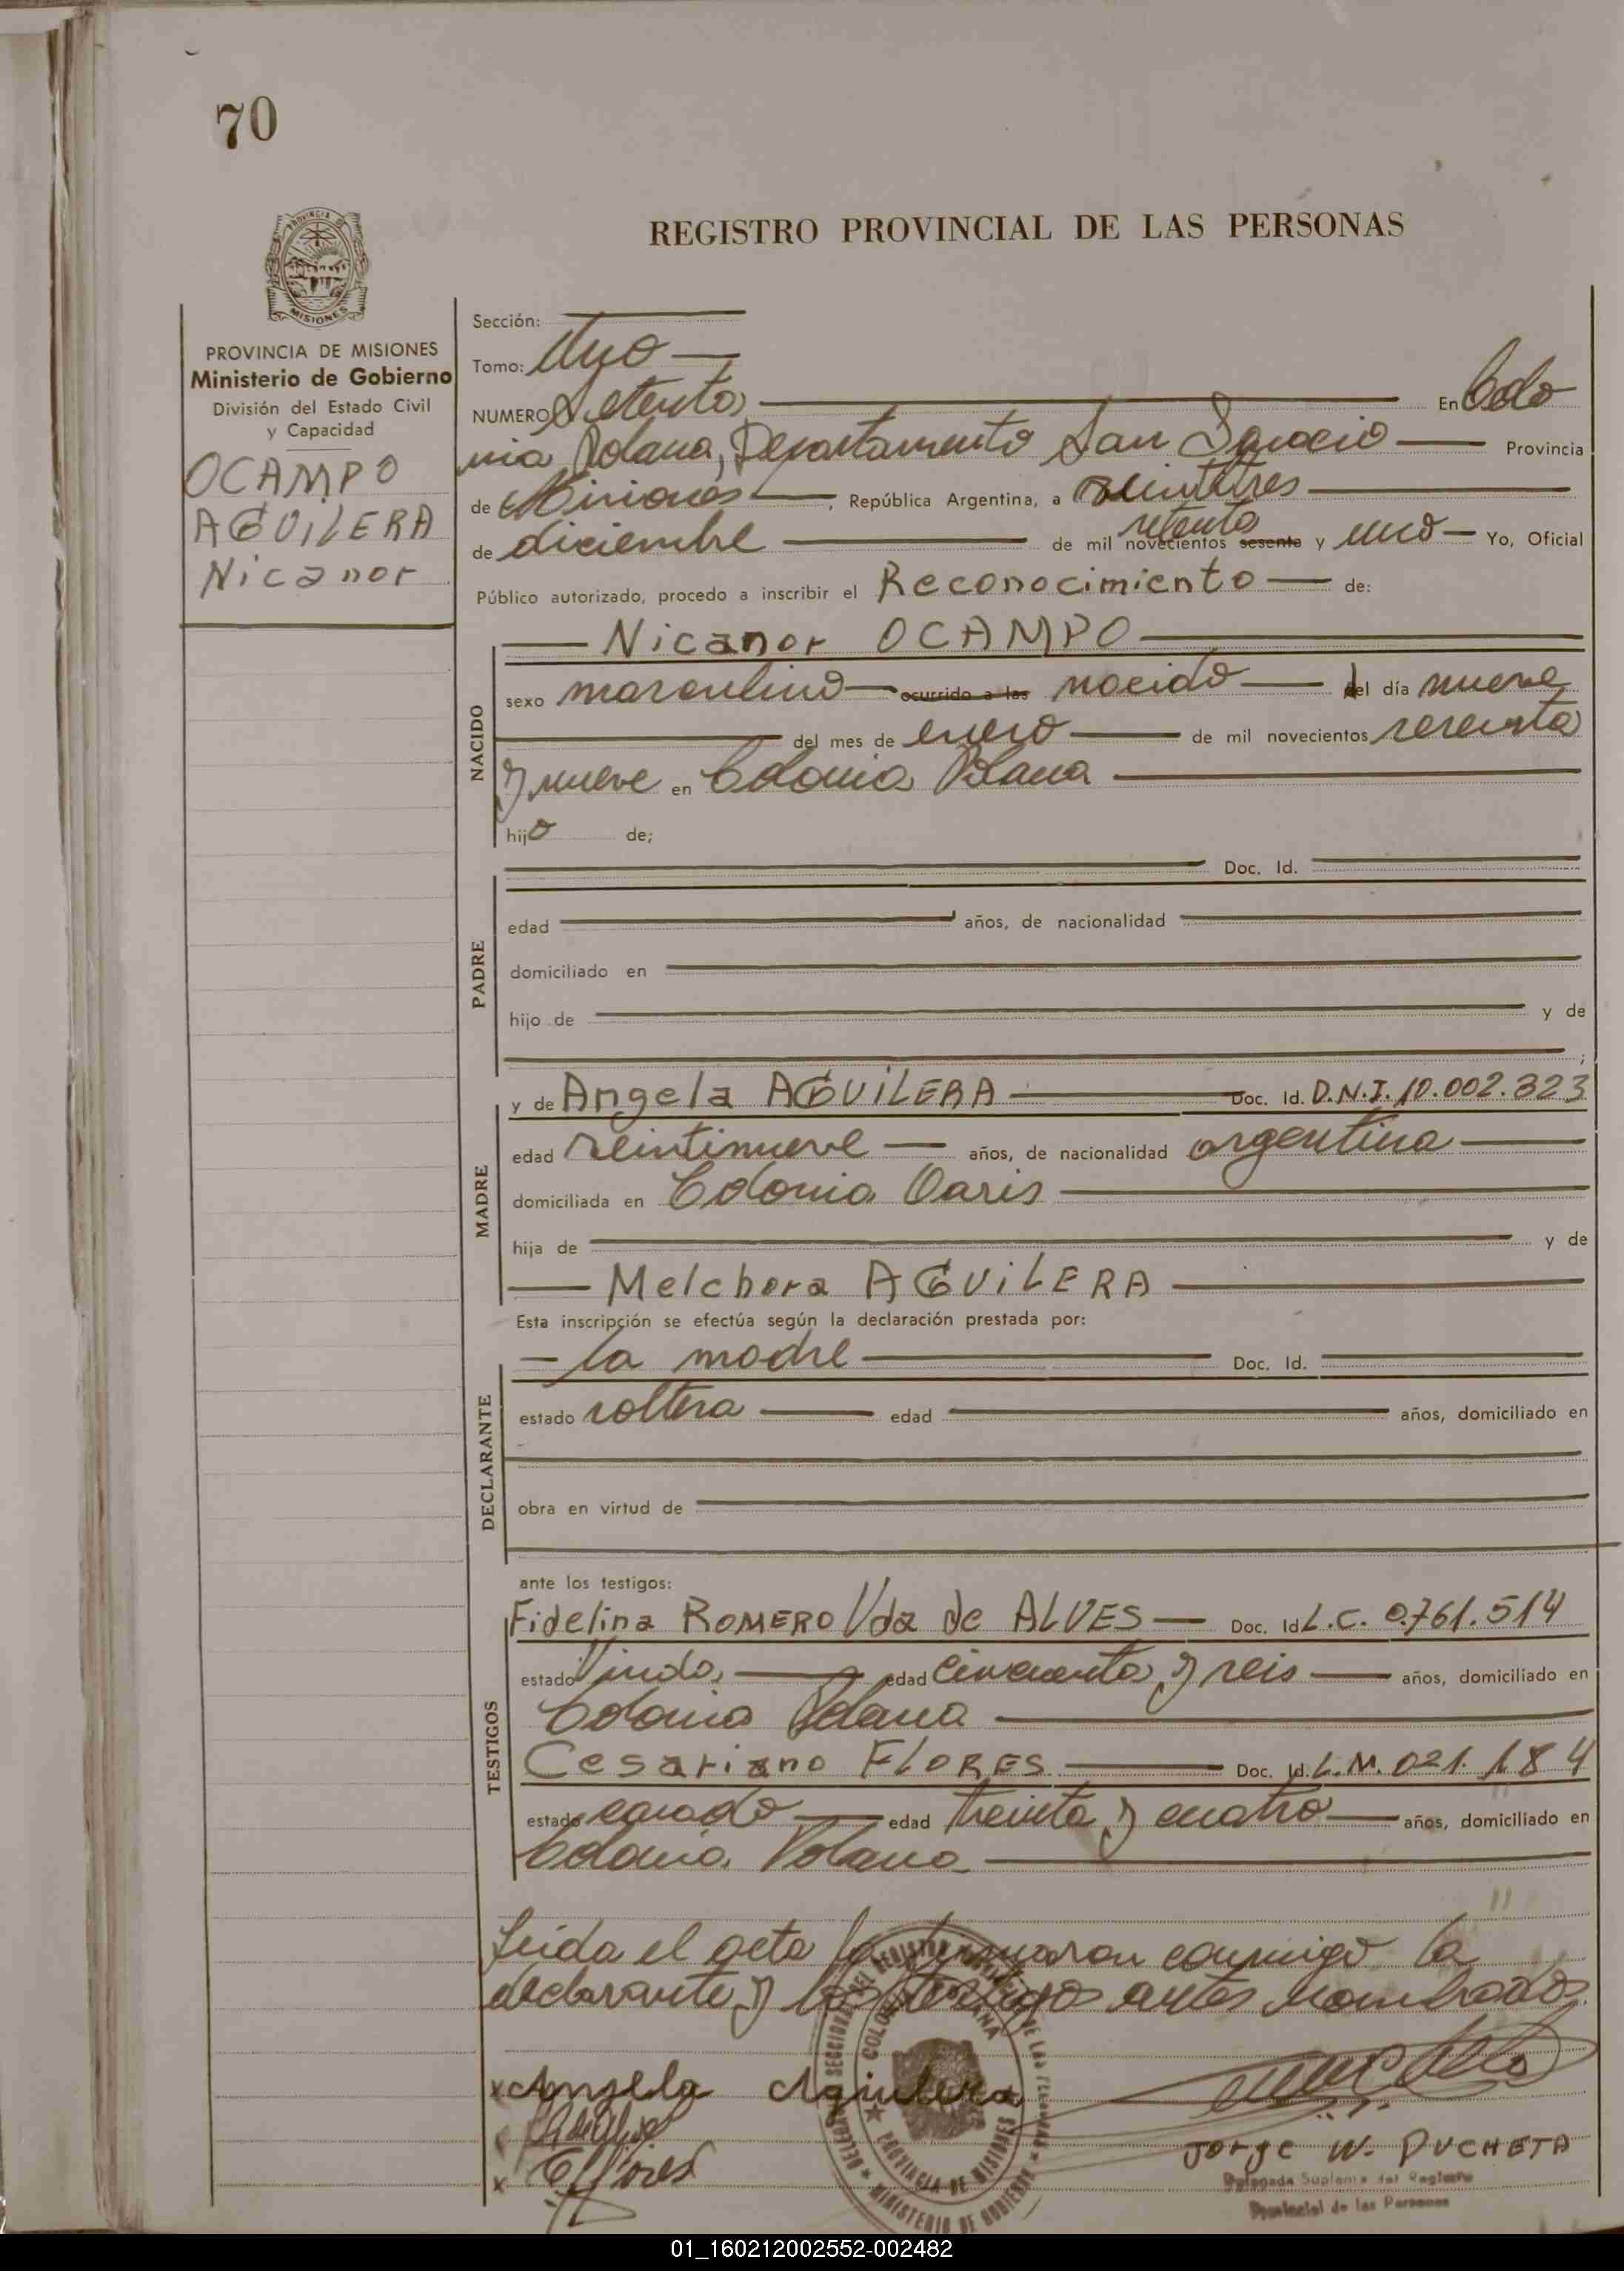 70
REGISTRO PROVINCIAL DE LAS PERSONAS
PROVINCIA DE MISIONES
Ministerio de Gobierno
División del Estado Civil
y Capacidad
OCAMPO
AGUILERA
Nicanor
Sección:
Tomo: Uno
NUMERO Setenta En Colo
nia Polana, Departamento San Ignacio Provincia
de Misiones, República Argentina, a veintitres
setenta
de diciembre de mil novecientos sesenta y uno Yo, Oficial
Público autorizado, procedo a inscribir el Reconocimiento de:
Nicanor OCAMPO
NACIDO
sexo masculino ocurrido a las nacido el día nueve
del mes de enero de mil novecientos sesenta
y nueve en Colonia Polana
hijo de;
Doc. Id.
PADRE
edad años, de nacionalidad
domiciliado en
hijo de y de
;
MADRE
y de Angela AGUILERA Doc. Id. D.N.I. 10.002.323
edad veintinueve años, de nacionalidad argentina
domiciliada en Colonia Oasis
hija de y de
Melchora AGUILERA
Esta inscripción se efectúa según la declaración prestada por:
DECLARANTE
la madre Doc. Id.
estado soltera edad años, domiciliado en
obra en virtud de
ante los testigos:
TESTIGOS
Fidelina ROMERO Vda de ALVES Doc. Id L.C. 0.761.514
estado Viuda edad cincuenta y seis años, domiciliado en
Colonia Polana
Cesariano FLORES Doc. Id. L.M. 021.184
estado casado edad treinta y cuatro años, domiciliado en
Colonia Polana
Leida el acta la firmaron conmigo la
declarante y los testigos antes nombrados
x Angela Aguilera
x EFlores
Jorge W. DUCHETA
Delegado Suplente del Registro
Provincial de las Personas
PROVINCIA DE MISIONES
MINISTERIO DE GOBIERNO
01_160212002552-002482